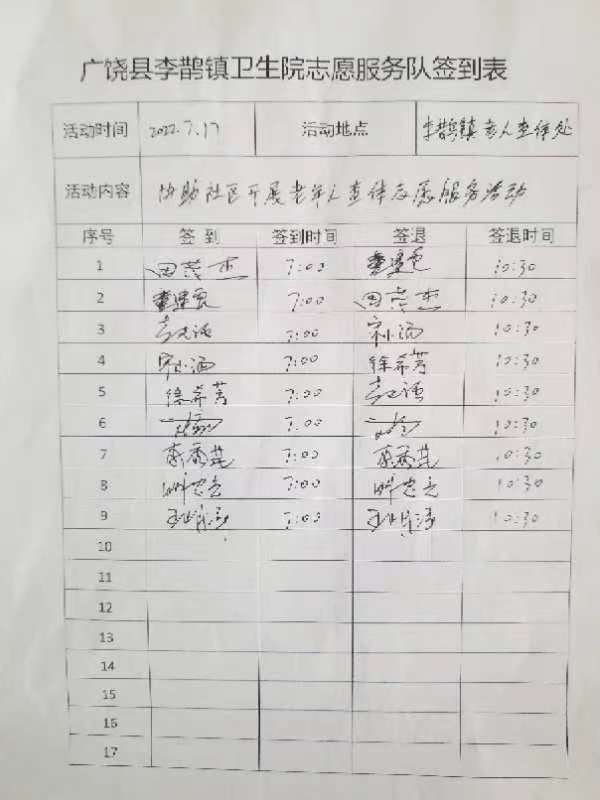 广饶县李鹊镇卫生院志愿服务队签到表
活动时间 2022.7.17 活动地点 李鹊镇老人查体处
活动内容 协助社区开展老年人查体志愿服务活动
序号 签到 签到时间 签退 签退时间
1 田荣杰 7:00 10:30
2 7:00 田荣杰 10:30
3 7:00 10:30
4 7:00 徐希芳 10:30
5 徐希芳 7:00 10:30
6 7:00 10:30
7 7:00 10:30
8 7:00 10:30
9 7:00 10:30
10
11
12
13
14
15
16
17